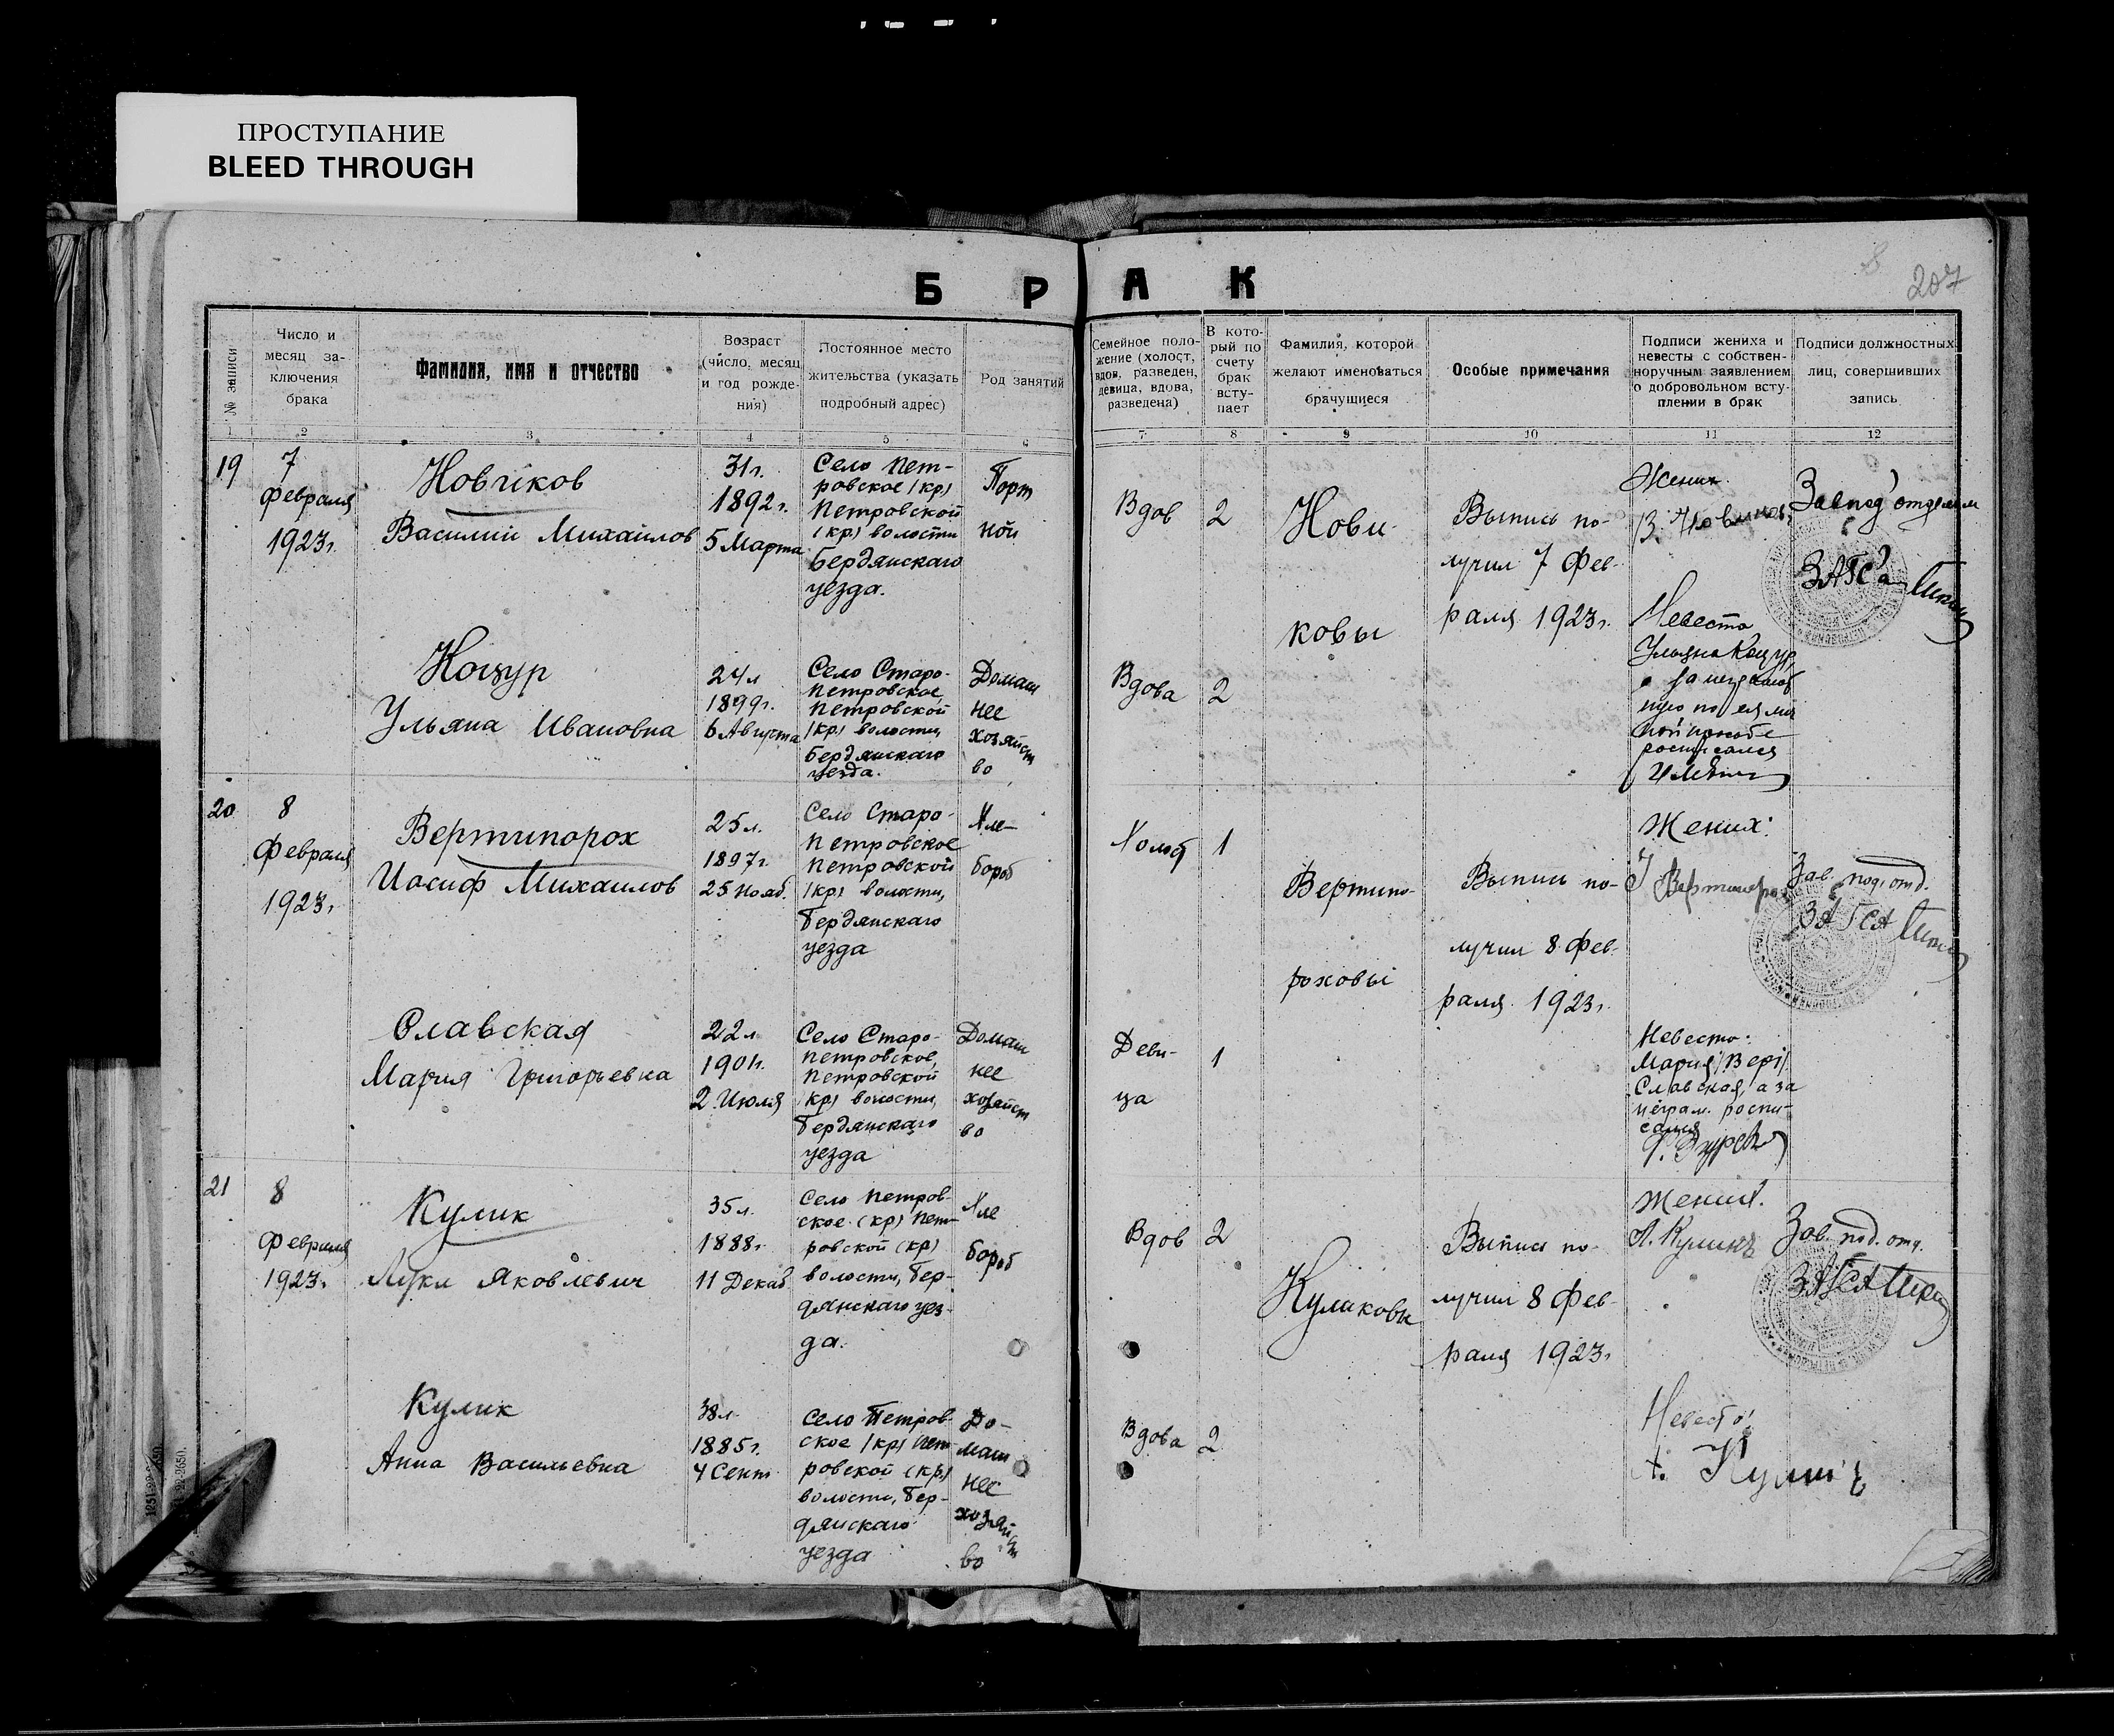 ПРОСТУПАНИЕ
BLEED THROUGH
Б Р А К
207
№ записи
Число и
месяц за-
ключения
брака
Фамилия, имя и отчество
Возраст
(число, месяц
и год рожде-
ния)
Постоянное место
жительства (указать
подробный адрес)
Род занятий
Семейное поло-
жение (холост,
вдов, разведен,
девица, вдова,
разведена)
В кото-
рый по
счету
брак
всту-
пает
Фамилия, которой
желают именоваться
брачущиеся
Особые примечания
Подписи жениха и
невесты с собствен-
норучным заявлением
о добровольном всту-
плении в брак
Подписи должностных
лиц, совершивших
запись
1 2 3 4 5 6 7 8 9 10 11 12
19
7
февраля
1923г.
Новиков
Василий Михайлов
31г.
1892г.
5 Марта
Село Пет-
ровское (кр)
Петровской
(кр) волости
Бердянскаго
уезда.
Порт
ной
Вдов
2
Нови-
ковы
Выпись по-
лучил 7 фев-
раля 1923г.
Жених
В. Новиков
Завпод'отделом
ЗАГС'а
Коцур
Ульяна Ивановна
24л
1899г.
6 Августа
Село Старо-
Петровское,
Петровской
(кр) волости,
Бердянскаго
уезда.
Домаш
нее
хозяйст
во
Вдова
2
Невеста
Ульяна Коцур,
а за неграмот
ную по ея лич
ной просьбе
росписался
20
8
февраля
1923г
Вертипорох
Иосиф Михаилов
25л.
1897г.
25 Нояб.
Село Старо-
Петровское
Петровской
(кр) волости,
Бердянскаго
уезда
Хле-
бороб
Холост
1
Вертипо-
роховы
Выпись по-
лучил 8 фев-
раля 1923г.
Жених:
Зав. под. отд.
ЗАГСА
Славская
Мария Григорьевна
22л
1901г.
2 Июля
Село Старо-
Петровское,
Петровской
(кр) волости,
Бердянскаго
уезда
Домаш
нее
хозяйст
во
Деви-
ца
1
Невеста:
Мария (Верт)
Славская, а за
неграм. роспи-
сался
21
8
февраля
1923г.
Кулик
Лука Яковлевич
35л.
1888г.
11 Декаб
Село Петров-
ское (кр) Пет-
ровской (кр)
волости, Бер-
дянскаго уез-
да.
Хле
бороб
Вдов
2
Куликовы
Выпись по-
лучил 8 фев-
раля 1923г
Жених.
Л. Куликъ
Зав. под. отд.
ЗАГСА
Кулик
Анна Васильевна
38л
1885г.
4 Сент
Село Петров-
ское (кр) Пет-
ровской (кр)
волости, Бер-
дянскаго
уезда
До-
маш
нее
хозяйст
во
Вдова
2
Невеста:
А. Куликъ